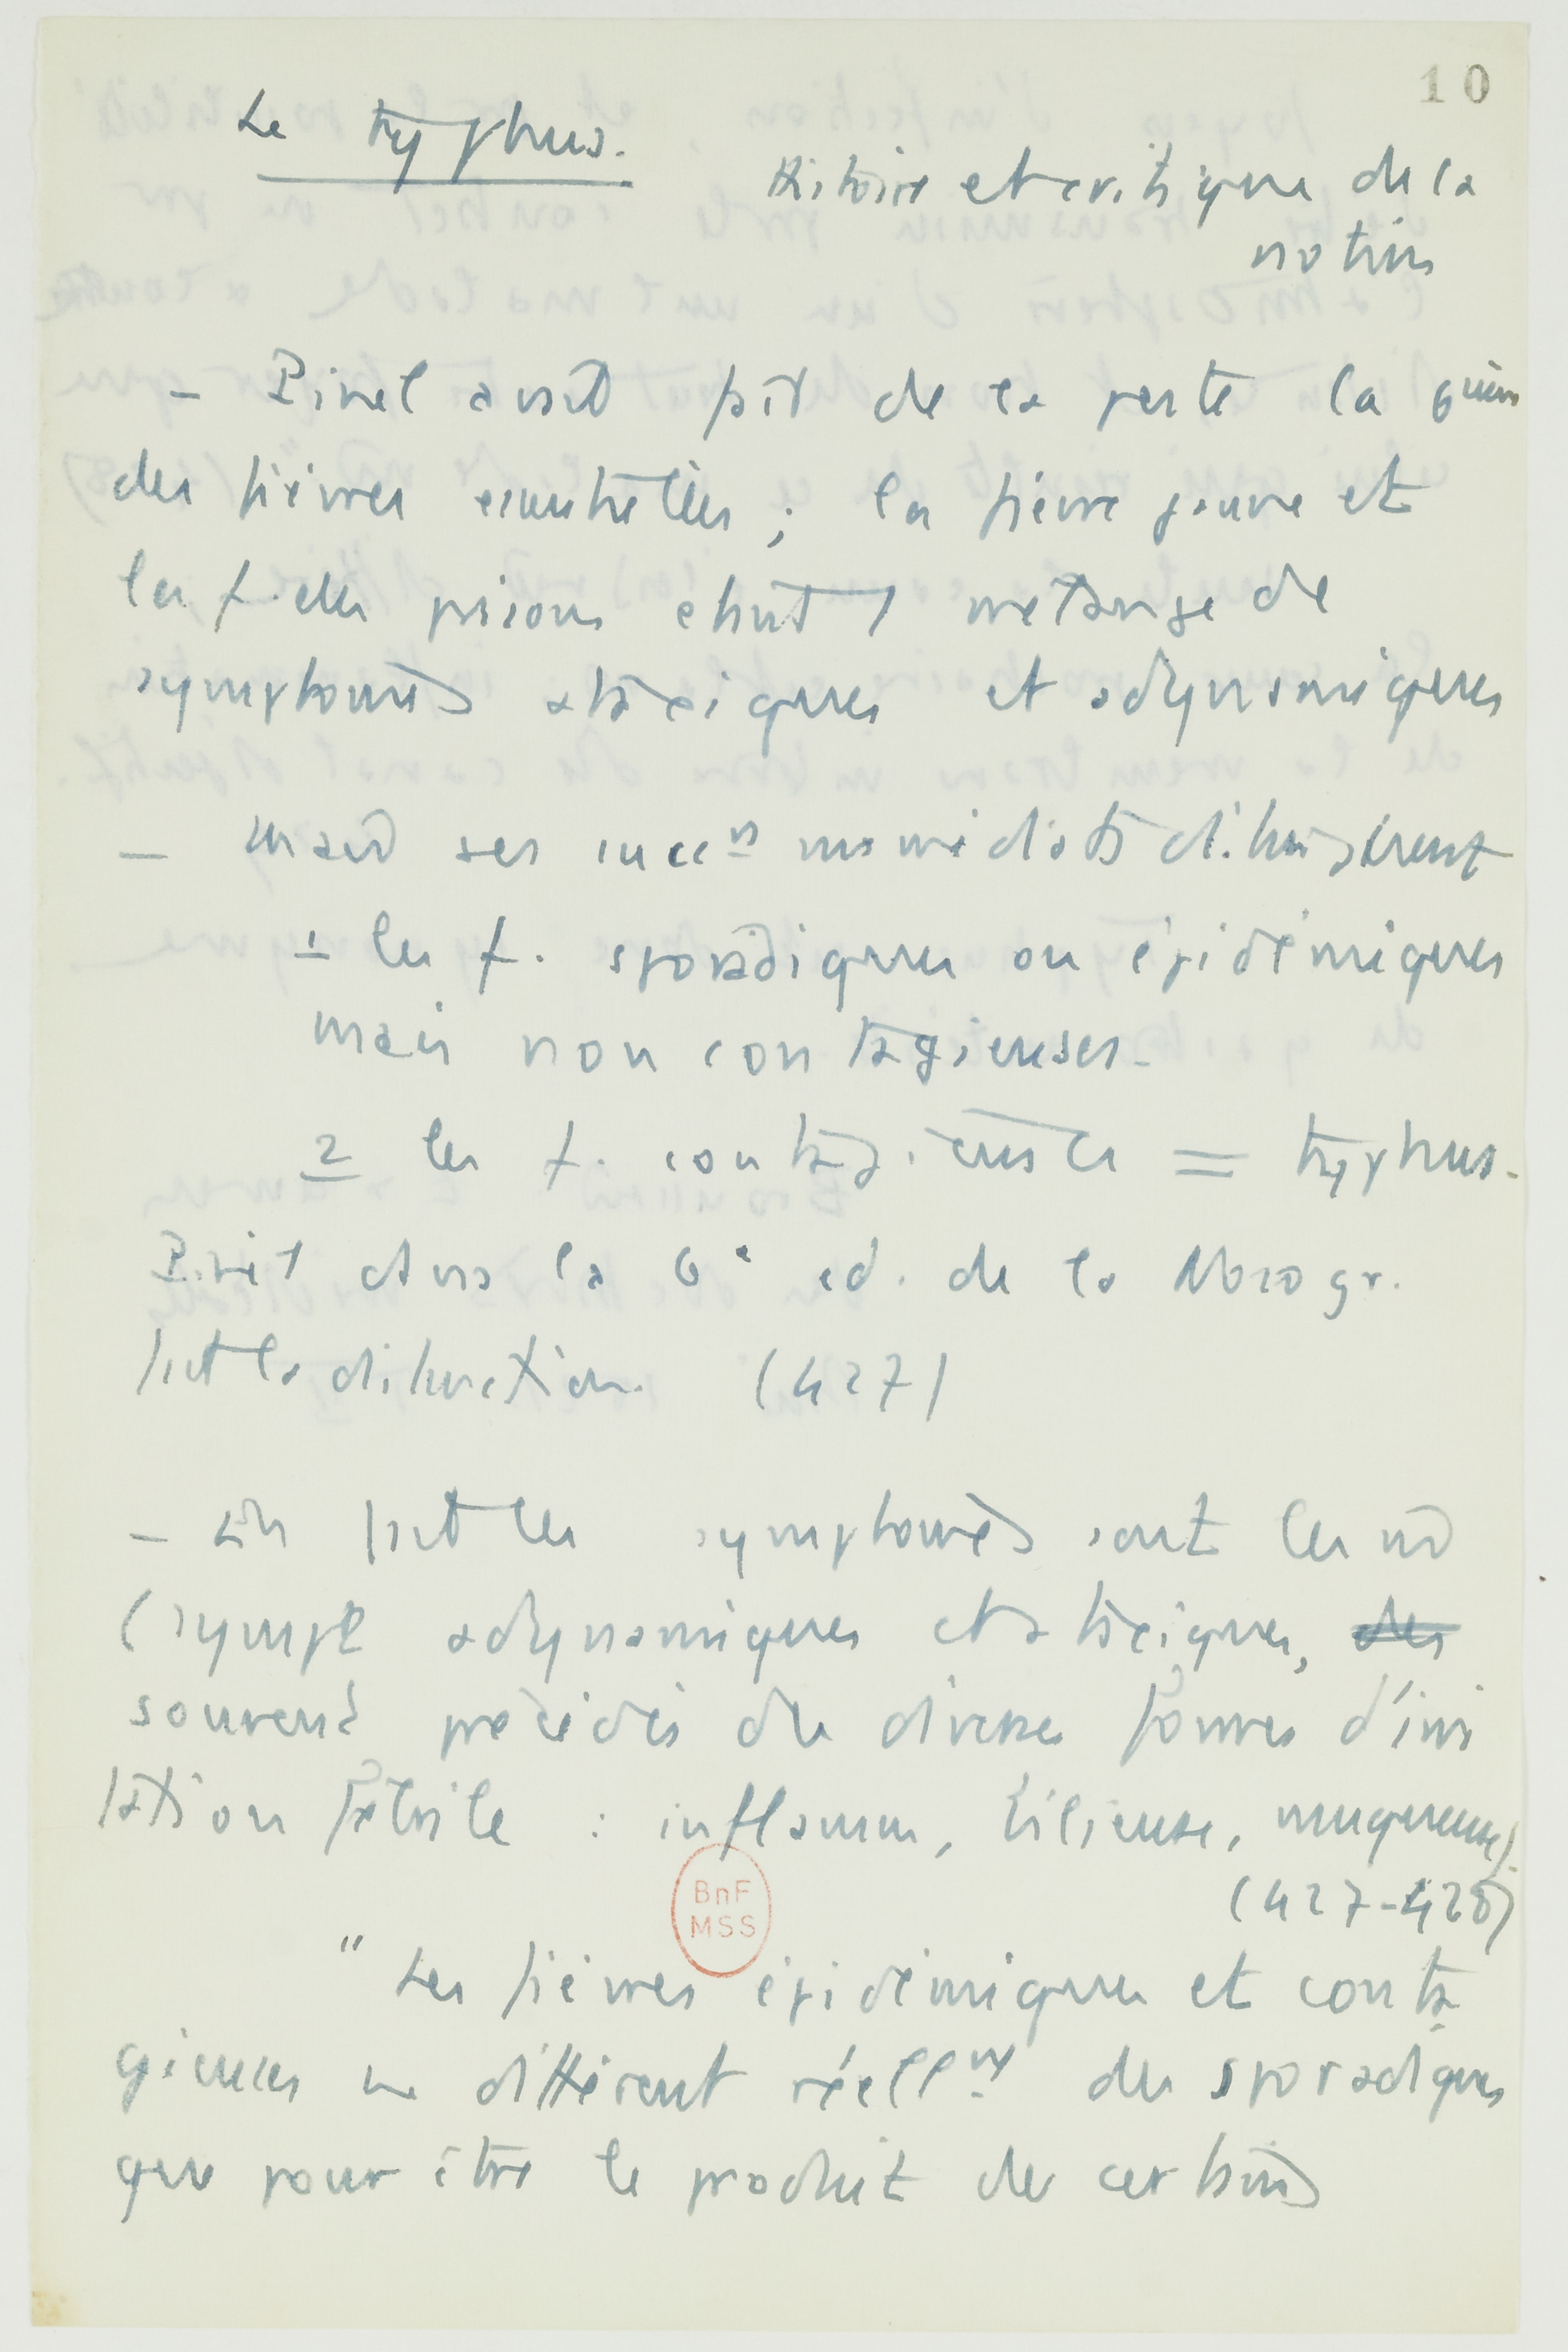 10
Le typhus.
Histoire et critique de la
notion
- Pinel avait fait de la peste la 6ième
des fièvres essentielles ; la fièvre jaune et
la f. des prisons étant 1 mélange de
symptomes ataxiques et adynamiques
- Mais ses succrs immédiats distinguèrent
1 les f. sporadiques ou épidémiques
mais non contagieuses.
2 les f. contagieuses = typhus.
Pinel dans la 6e éd. de la Nosogr.
fait la distinction. (427)
- En fait les symptomes sont les mes
(sympt adynamiques et ataxiques, des
souvent précédés de diverses formes d'irri
tation fébrile : inflamm, bilieuse, muqueuse).
(427-428)
BnF
MSS
" Les fièvres épidémiques et conta
gieuses ne diffèrent réellmt des sporadiques
que pour être le produit de certains